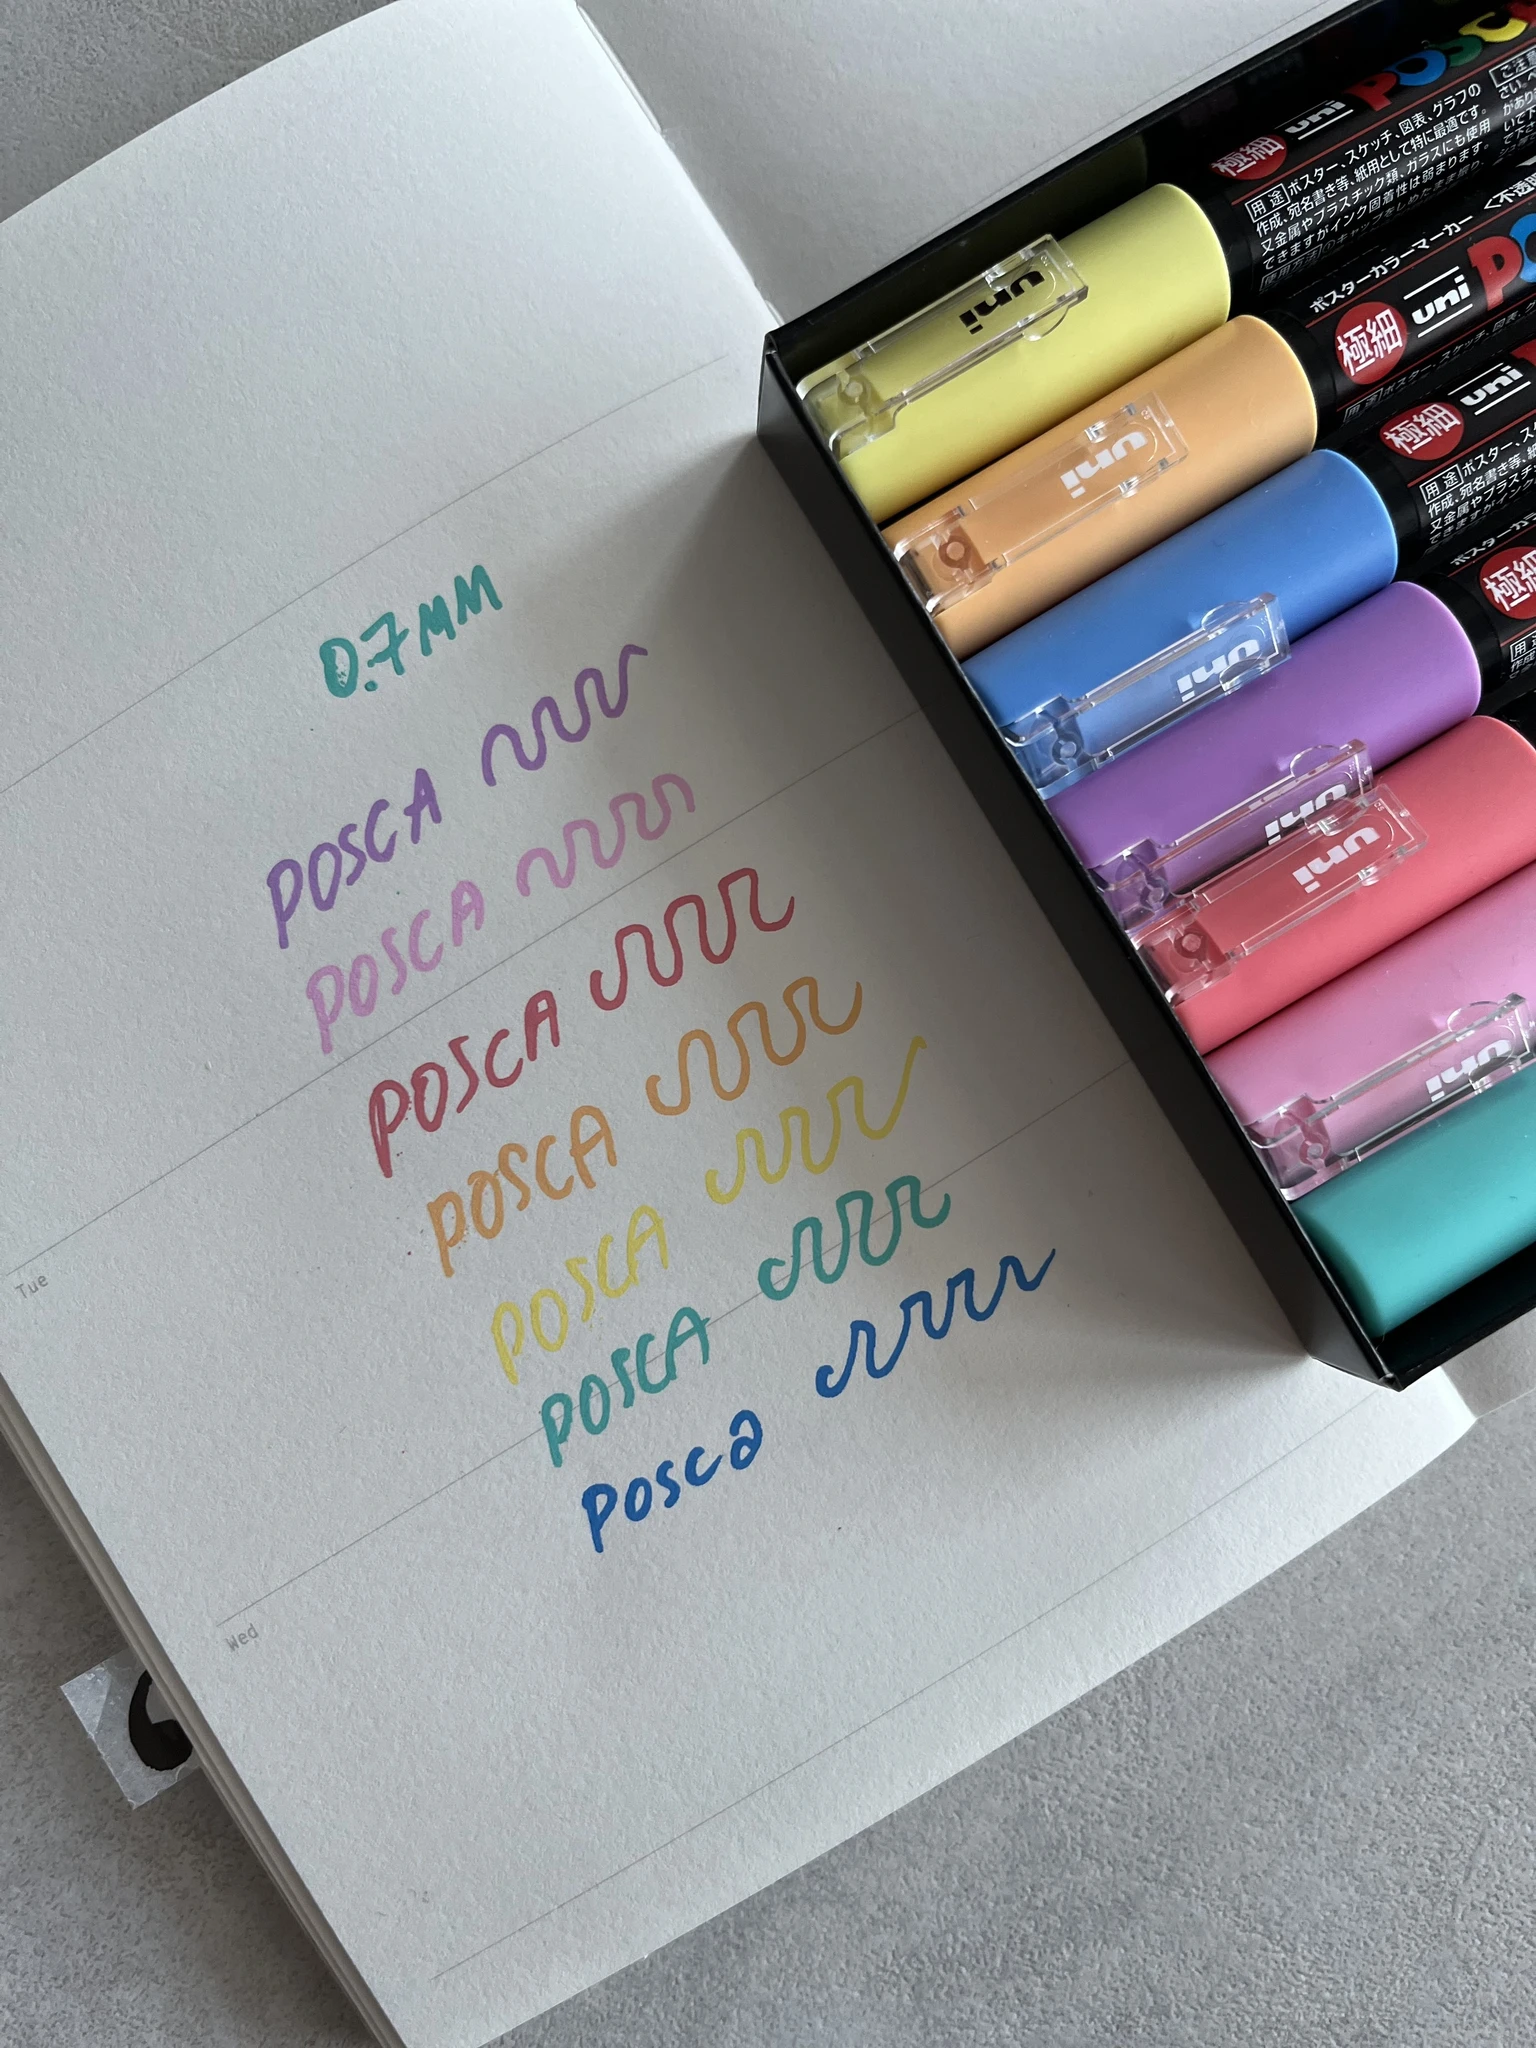 0.7MM
POSCA
POSCA
POSCA
POSCA
POSCA
POSCA
Posca
Tue
Wed
極細 uni POSC
用途 ポスター、スケッチ、図表、グラフの
作成、宛名書き等、紙用として特に最適です。
又金属やプラスチック類、ガラスにも使用
できますがインク固着性は弱まります。
uni
ポスターカラーマーカー
極細 uni PO
uni
極細 uni
用途 ポスター、ス
作成、宛名書き等、紙
又金属やプラスチッ
uni
極細
uni
uni
uni